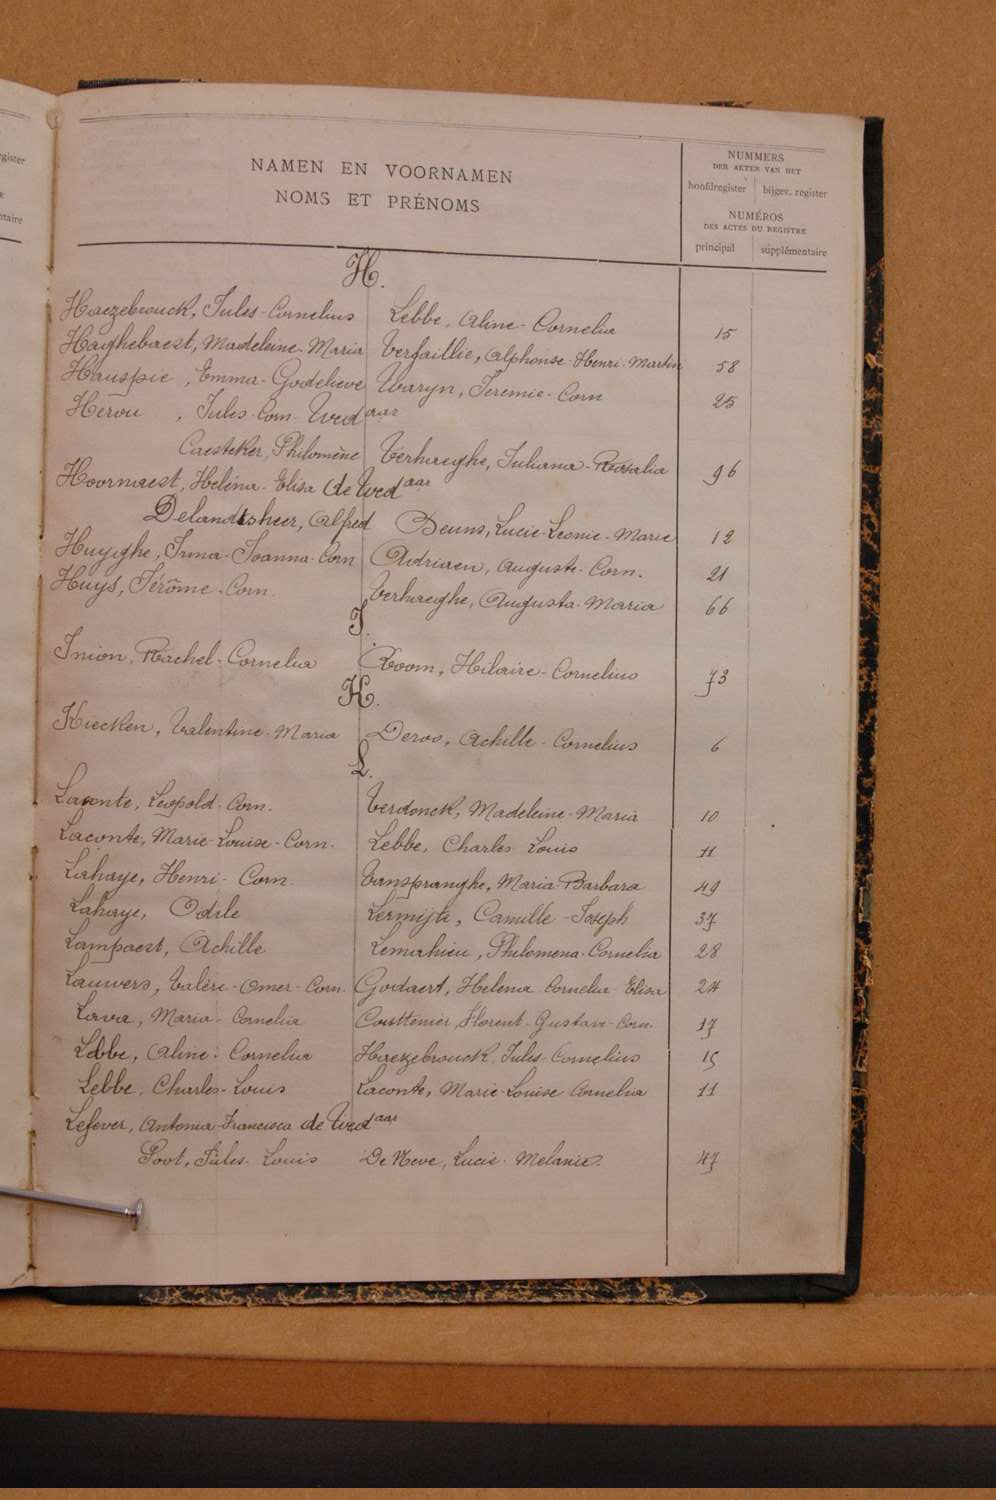 gister
ntaire
NAMEN EN VOORNAMEN
NOMS ET PRÉNOMS
NUMMERS
DER AKTEN VAN HET
hoofdregister bijgev. register
NUMÉROS
DES ACTES DU REGISTRE
principal supplémentaire
H.
Haezebrouck, Jules-Cornelius Lebbe, Aline-Cornelia 15
Haghebaert, Madeleine-Maria Verfaillie, Alphonse-Henri-Martin 58
Hauspie, Emma-Godelieve Waryn, Jeremie-Corn 25
Herou, Jules-Corn-Wed aar
Caesteker, Philomène Verhaeghe, Juliana-Rosalia 96
Hoornaest, Helena-Elisa de Wed aar
Delandtsheer, Alfred Beuns, Lucie-Leonie-Marie 12
Huyghe, Irma-Joanna-Corn Adriaen, Auguste-Corn. 21
Huys, Jérôme-Corn. Verhaeghe, Augusta-Maria 66
I.
Inion, Rachel-Cornelia Room, Hilaire-Cornelius 73
K.
Kiecken, Valentine-Maria Deroo, Achille-Cornelius 6
L.
Laconte, Leopold-Corn. Verdonck, Madeleine-Maria 10
Laconte, Marie-Louise-Corn. Lebbe, Charles-Louis 11
Lahaye, Henri-Corn. Vanspranghe, Maria-Barbara 49
Lahaye, Odile Lermijte, Camille-Joseph 37
Lampaert, Achille Lemahieu, Philomena-Cornelia 28
Lauwers, Valère-Omer-Corn. Godaert, Helena-Cornelia-Elisa 24
Lava, Maria-Cornelia Couttenier, Florent-Gustave-Corn. 17
Lebbe, Aline-Cornelia Haezebrouck, Jules-Cornelius 15
Lebbe, Charles-Louis Laconte, Marie-Louise Cornelia 11
Lefever, Antonia-Francisca de Wed aar
Poot, Jules-Louis De Neve, Lucie-Melanie. 47